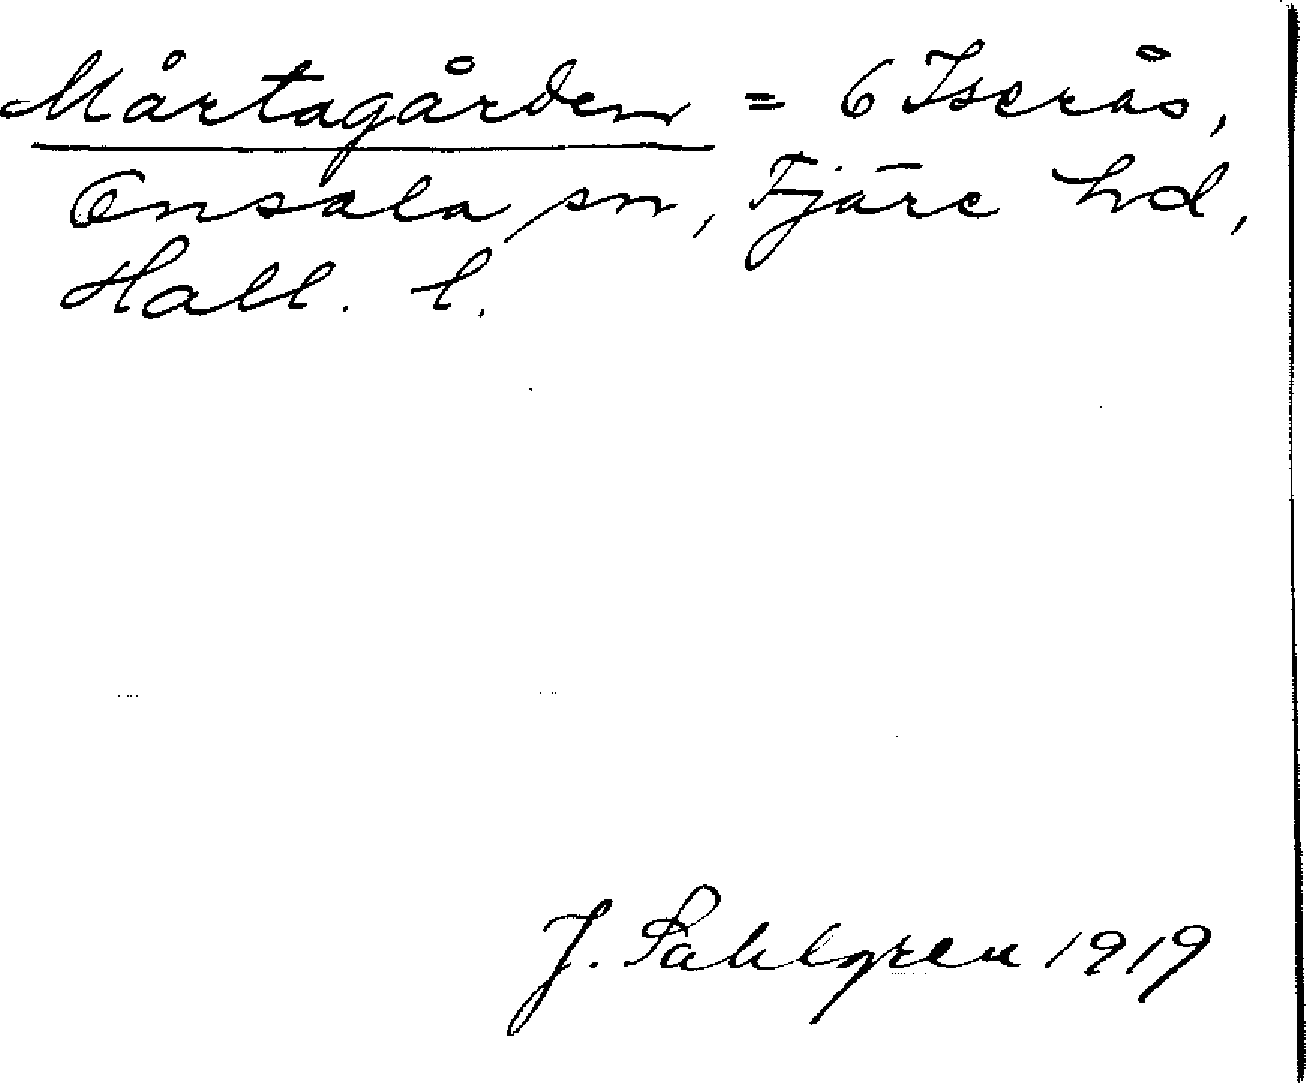 Mårtagården = 6 Iserås,
Onsala sn, Fjäre hd,
Hall. l.
J. Sahlgren 1919